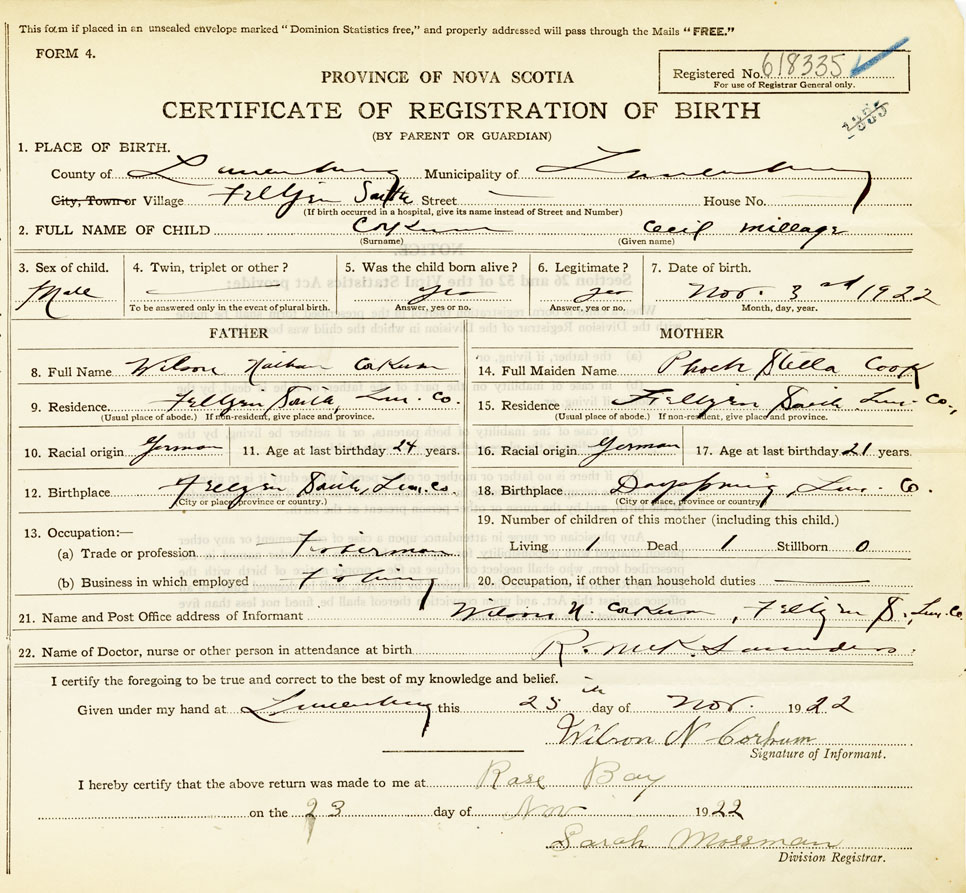 This form if placed in an unsealed envelope marked "Dominion Statistics free," and properly addressed will pass through the Mails "FREE."
FORM 4.
Registered No. 618335
For use of Registrar General only.
PROVINCE OF NOVA SCOTIA
CERTIFICATE OF REGISTRATION OF BIRTH
(BY PARENT OR GUARDIAN)
1. PLACE OF BIRTH.
County of Lunenburg Municipality of Lunenburg
City, Town or Village Feltzen South Street — House No.
(If birth occurred in a hospital, give its name instead of Street and Number)
2. FULL NAME OF CHILD Corkum Cecil Millage
(Surname) (Given name)
3. Sex of child. 4. Twin, triplet or other? 5. Was the child born alive? 6. Legitimate? 7. Date of birth.
Male — yes yes Nov. 3rd 1922
To be answered only in the event of plural birth. Answer, yes or no. Answer, yes or no. Month, day, year.
FATHER MOTHER
8. Full Name Wilson Nathan Corkum 14. Full Maiden Name Phoeb Stella Cook
9. Residence Feltzen South, Lun. Co. 15. Residence Feltzen South Lun. Co.,
(Usual place of abode.) If non-resident, give place and province. (Usual place of abode.) If non-resident, give place and province.
10. Racial origin German 11. Age at last birthday 24 years. 16. Racial origin German 17. Age at last birthday 21 years.
12. Birthplace Feltzen South, Lun. Co. 18. Birthplace Dayspring, Lun. Co.
(City or place, province or country.) (City or place, province or country)
13. Occupation:— 19. Number of children of this mother (including this child.)
(a) Trade or profession Fisherman Living 1 Dead 1 Stillborn 0
(b) Business in which employed Fishing 20. Occupation, if other than household duties —
21. Name and Post Office address of Informant Wilson N. Corkum, Feltzen S., Lun. Co.
22. Name of Doctor, nurse or other person in attendance at birth R. McK. Saunders
I certify the foregoing to be true and correct to the best of my knowledge and belief.
Given under my hand at Lunenburg this 25th day of Nov. 1922
Wilson N Corkum
Signature of Informant.
I hereby certify that the above return was made to me at Rose Bay
on the 23 day of Nov 1922
Sarah Mossman
Division Registrar.